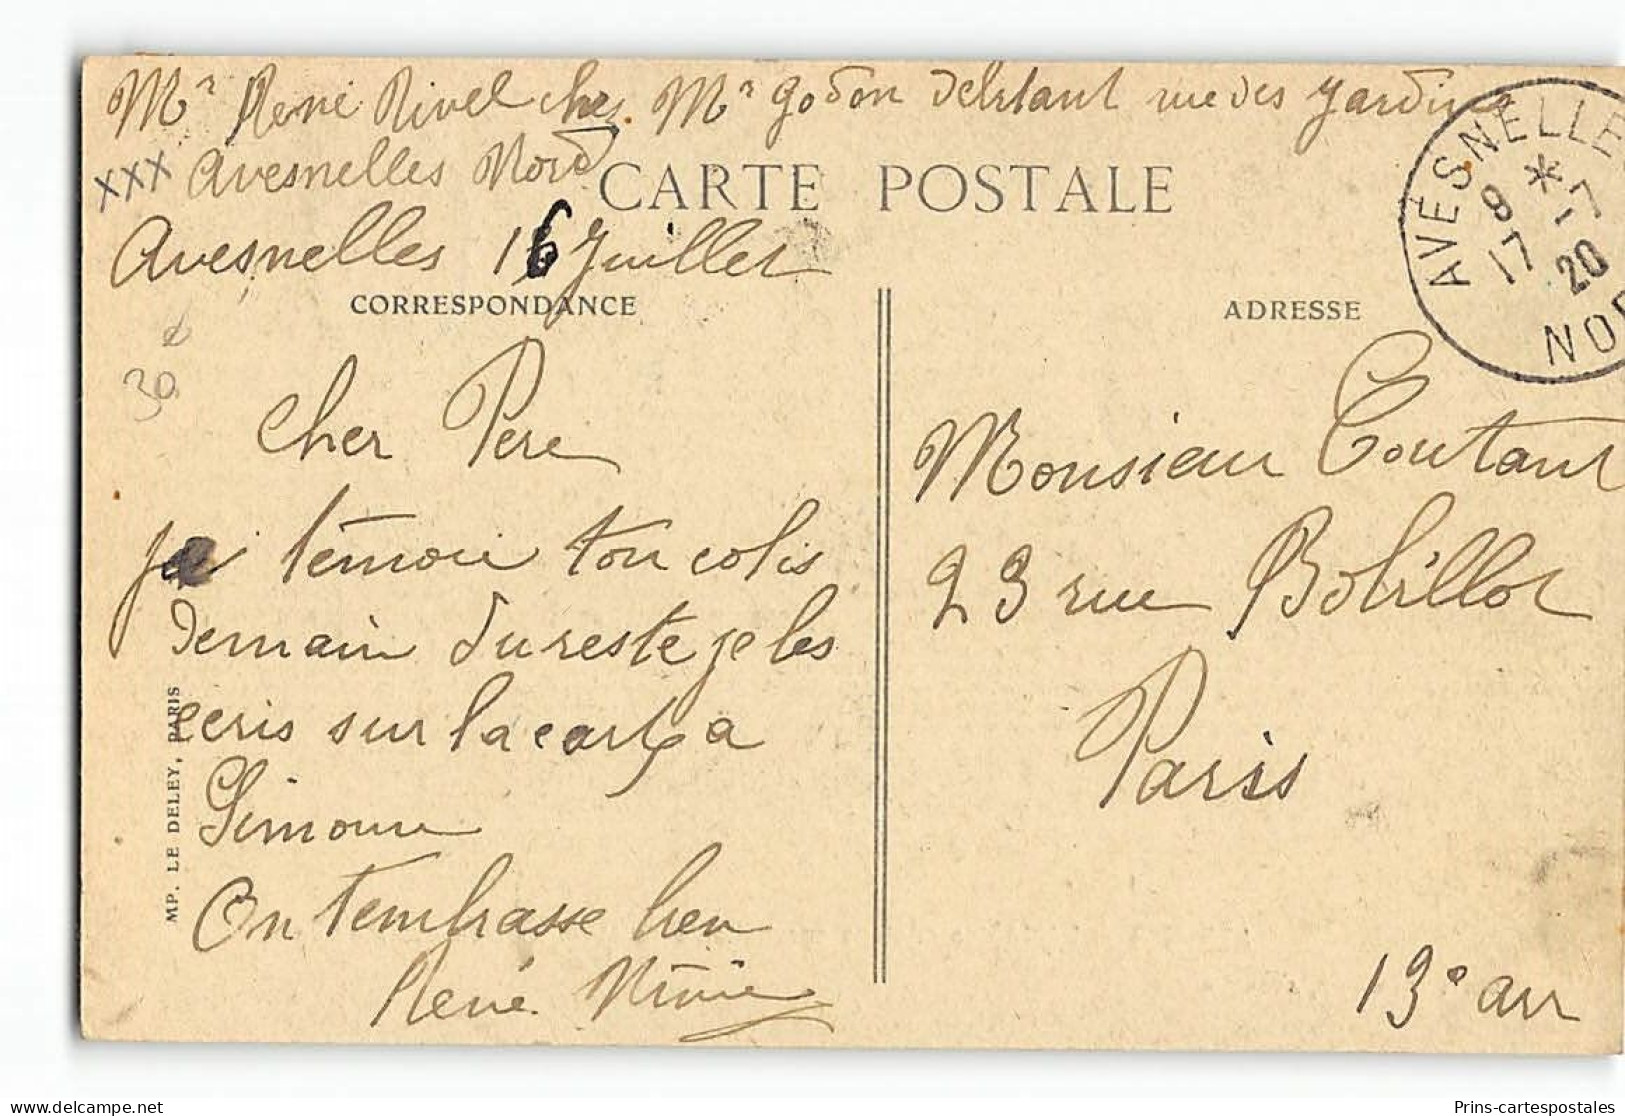 Mr René Rivel chez Mr Godon Delstant rue des Jardins
xxx Avesnelles Nord
CARTE POSTALE
Avesnelles 16 Juillet
CORRESPONDANCE
Cher Pere
je t'envoie ton colis
Demain du reste je les
ecris sur la carte a
Simonne
On t'embrasse bien
René Ninie
MP. LE DELEY, PARIS
30
ADRESSE
AVESNELLES
8 * -7
17 20
NORD
Monsieur Coutant
23 rue Bobillot
Paris
13e arr
Prins-cartespostales